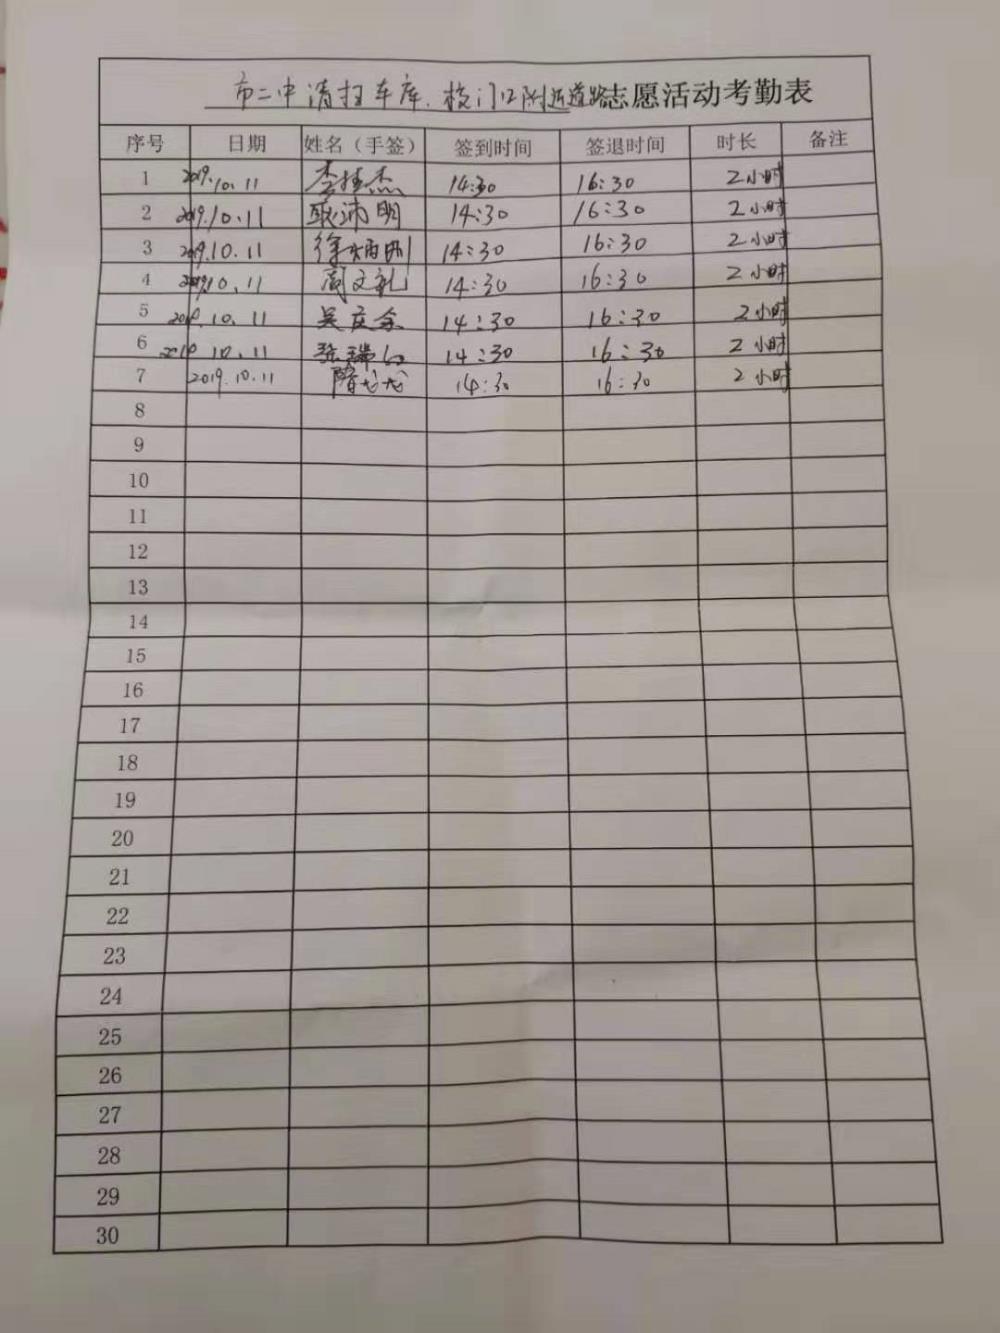 市二中清扫车库、校门口附近道路志愿活动考勤表
序号 日期 姓名（手签） 签到时间 签退时间 时长 备注
1 2019.10.11 李桂杰 14:30 16:30 2小时
2 2019.10.11 耿沛明 14:30 16:30 2小时
3 2019.10.11 徐 14:30 16:30 2小时
4 2019.10.11 周文礼 14:30 16:30 2小时
5 2019.10.11 吴 14:30 16:30 2小时
6 2019.10.11 14:30 16:30 2小时
7 2019.10.11 14:30 16:30 2小时
8
9
10
11
12
13
14
15
16
17
18
19
20
21
22
23
24
25
26
27
28
29
30